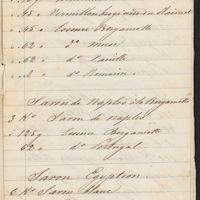 " 45 " Vermillon
" 45 " Essence Bergamotte
" 62 " do musc
" 62 " do Vanille
" 8 " do Romarin
Savon de Naples à la Bergamotte
3 Ko Savon de Naples
" 125 g Essence Bergamotte
" 62 " do Portugal
Savon Egyptien
6 Ko Savon blanc